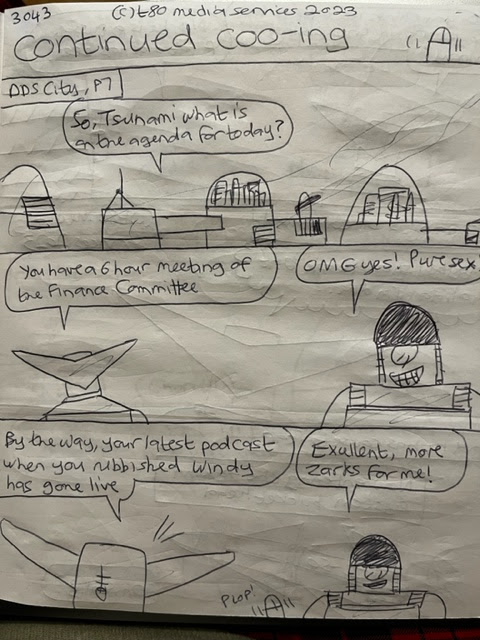 3043
(C) t80 media services 2023
Continued coo-ing
DDS City, P7
So, Tsunami what is
on the agenda for today?
You have a 6 hour meeting of
the Finance Committee
OMG yes! Pure sex!
By the way, your latest podcast
when you rubbished Windy
has gone live
Exullent, more
Zarks for me!
PLOP!